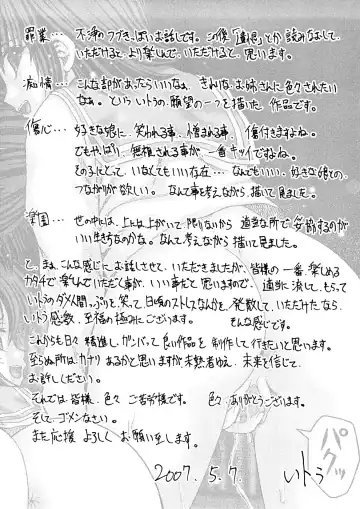 罪業… 不浄のつづきっぽいお話しです。この後「憧憬」とか読みなおして
いただけると、より楽しんで、いただけると思います。
痴情… こんな部があったらいいなぁ。きれいなお姉さんに色々されたい
なぁ。という いトうの願望の一つを描いた 作品です。
傷心… 好きな娘に、笑われる事、憎まれる事、傷付きますよね。
でもやっぱり、無視される事が一番キツイですね。
その子にとって、いなくてもいい存在… なんでもいい、好きな娘との、
つながりが欲しい。 なんて事を考えながら、描いて見ました。
楽園… 世の中には、上には上がいて限りないから 適当な所で妥協するのが
いい生き方なのかな。なんて、考えながら描いて見ました。
て、まぁ、こんな感じにお話しさせて、いただきましたが、皆様の一番、楽しめる
カタチで楽しんでいただく事が、いい事だと思いますので、適当に流して、もらって
いトうのダメ人間っぷりを笑って、日頃のストレスなんかを、発散して、いただけたなら、
いトう感激、至極の極みにございます。 そんな感じです。
これからも日々精進し、ガンバって良い作品を制作して行きたいと思います。
至らぬ所は、カナリあるかと思いますが未熟者ゆえ、未来を信じて、
お許しください。
それでは皆様、色々ご苦労様です。 色々、ありがとうございます。
そして、ゴメンなさい。
また応援 よろしくお願い致します。
2007. 5. 7. いトう
パクッ